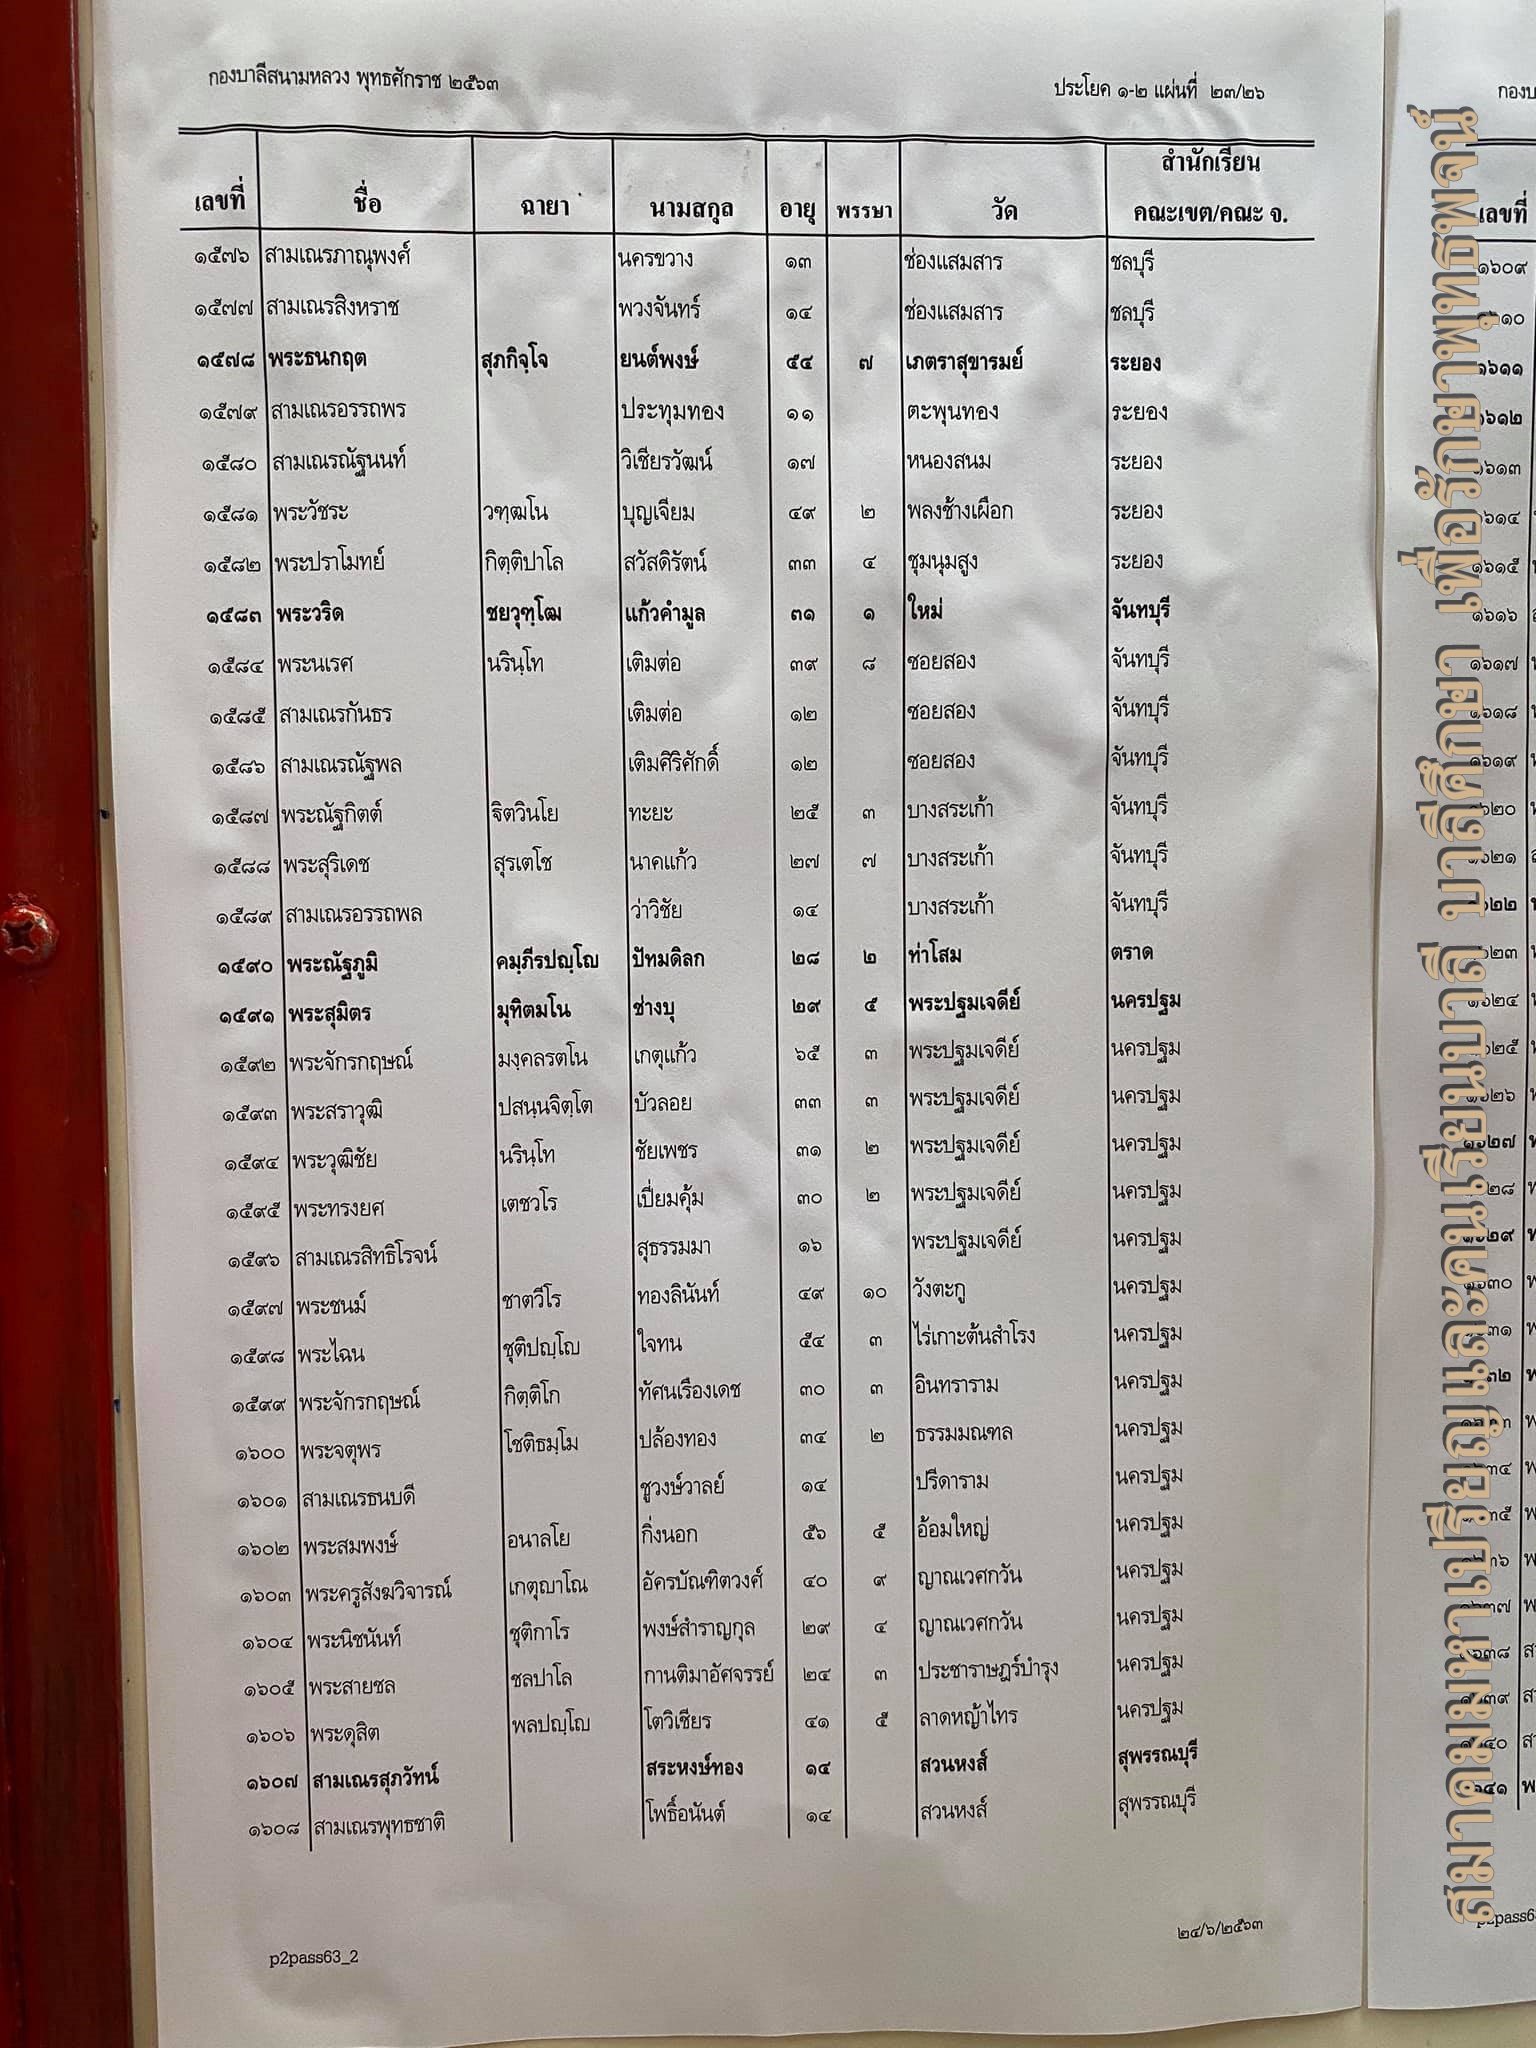 กองบาลีสนามหลวง พุทธศักราช ๒๕๖๓ ประโยค ๑-๒ แผ่นที่ ๒๓/๒๖
เลขที่ ชื่อ ฉายา นามสกุล อายุ พรรษา วัด สำนักเรียน คณะเขต/คณะ จ.
๑๕๗๖ สามเณรภาณุพงศ์ นครขวาง ๑๓ ช่องแสมสาร ชลบุรี
๑๕๗๗ สามเณรสิงหราช พวงจันทร์ ๑๔ ช่องแสมสาร ชลบุรี
๑๕๗๘ พระธนกฤต สุภกิจฺโจ ยนต์พงษ์ ๕๔ ๗ เภตราสุขารมย์ ระยอง
๑๕๗๙ สามเณรอรรถพร ประทุมทอง ๑๑ ตะพุนทอง ระยอง
๑๕๘๐ สามเณรณัฐนนท์ วิเชียรวัฒน์ ๑๗ หนองสนม ระยอง
๑๕๘๑ พระวัชระ วฑฺฒโน บุญเจียม ๔๙ ๒ พลงช้างเผือก ระยอง
๑๕๘๒ พระปราโมทย์ กิตฺติปาโล สวัสดิรัตน์ ๓๓ ๔ ชุมนุมสูง ระยอง
๑๕๘๓ พระวริด ชยวุฑฺโฒ แก้วคำมูล ๓๑ ๑ ใหม่ จันทบุรี
๑๕๘๔ พระนเรศ นรินฺโท เติมต่อ ๓๙ ๘ ซอยสอง จันทบุรี
๑๕๘๕ สามเณรกันธร เติมต่อ ๑๒ ซอยสอง จันทบุรี
๑๕๘๖ สามเณรณัฐพล เติมศิริศักดิ์ ๑๒ ซอยสอง จันทบุรี
๑๕๘๗ พระณัฐกิตต์ จิตวินโย ทะยะ ๒๕ ๓ บางสระเก้า จันทบุรี
๑๕๘๘ พระสุริเดช สุรเตโช นาคแก้ว ๒๗ ๗ บางสระเก้า จันทบุรี
๑๕๘๙ สามเณรอรรถพล ว่าวิชัย ๑๔ บางสระเก้า จันทบุรี
๑๕๙๐ พระณัฐภูมิ คมฺภีรปญฺโญ ปัทมดิลก ๒๘ ๒ ท่าโสม ตราด
๑๕๙๑ พระสุมิตร มุทิตมโน ช่างบุ ๒๙ ๕ พระปฐมเจดีย์ นครปฐม
๑๕๙๒ พระจักรกฤษณ์ มงฺคลรตโน เกตุแก้ว ๖๕ ๓ พระปฐมเจดีย์ นครปฐม
๑๕๙๓ พระสราวุฒิ ปสนฺนจิตฺโต บัวลอย ๓๓ ๓ พระปฐมเจดีย์ นครปฐม
๑๕๙๔ พระวุฒิชัย นรินฺโท ชัยเพชร ๓๑ ๒ พระปฐมเจดีย์ นครปฐม
๑๕๙๕ พระทรงยศ เตชวโร เปี่ยมคุ้ม ๓๐ ๒ พระปฐมเจดีย์ นครปฐม
๑๕๙๖ สามเณรสิทธิโรจน์ สุธรรมมา ๑๖ พระปฐมเจดีย์ นครปฐม
๑๕๙๗ พระชนม์ ชาตวีโร ทองลินันท์ ๔๙ ๑๐ วังตะกู นครปฐม
๑๕๙๘ พระไฉน ชุติปญฺโญ ใจทน ๕๔ ๓ ไร่เกาะต้นสำโรง นครปฐม
๑๕๙๙ พระจักรกฤษณ์ กิตฺติโก ทัศนเรืองเดช ๓๐ ๓ อินทราราม นครปฐม
๑๖๐๐ พระจตุพร โชติธมฺโม ปล้องทอง ๓๔ ๒ ธรรมมณฑล นครปฐม
๑๖๐๑ สามเณรธนบดี ชูวงษ์วาลย์ ๑๔ ปรีดาราม นครปฐม
๑๖๐๒ พระสมพงษ์ อนาลโย กิ่งนอก ๕๖ ๕ อ้อมใหญ่ นครปฐม
๑๖๐๓ พระครูสังฆวิจารณ์ เกตุญาโณ อัครบัณฑิตวงศ์ ๔๐ ๙ ญาณเวศกวัน นครปฐม
๑๖๐๔ พระนิชนันท์ ชุติกาโร พงษ์สำราญกุล ๒๙ ๔ ญาณเวศกวัน นครปฐม
๑๖๐๕ พระสายชล ชลปาโล กานติมาอัศจรรย์ ๒๔ ๓ ประชาราษฎร์บำรุง นครปฐม
๑๖๐๖ พระดุสิต พลปญฺโญ โตวิเชียร ๔๑ ๕ ลาดหญ้าไทร นครปฐม
๑๖๐๗ สามเณรสุภวัทน์ สระหงษ์ทอง ๑๔ สวนหงส์ สุพรรณบุรี
๑๖๐๘ สามเณรพุทธชาติ โพธิ์อนันต์ ๑๔ สวนหงส์ สุพรรณบุรี
p2pass63_2 ๒๔/๖/๒๕๖๓
สมาคมมหาเปรียญและคนเรียนบาลี บาลีศึกษา เพื่อรักษาพุทธพจน์